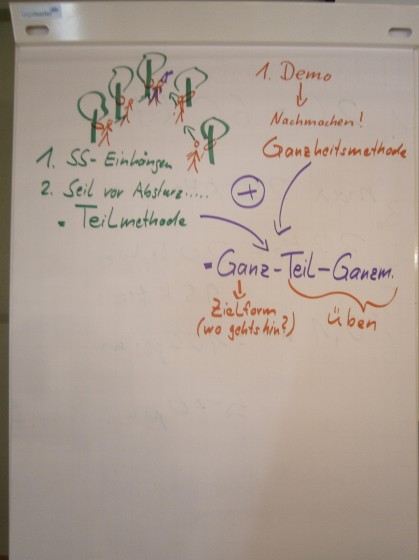 1. Demo
Nachmachen!
Ganzheitsmethode
1. SS-Einhängen
2. Seil vor Absturz.....
• Teilmethode
+
• Ganz-Teil-Ganzm.
Zielform
(wo gehts hin?)
Üben